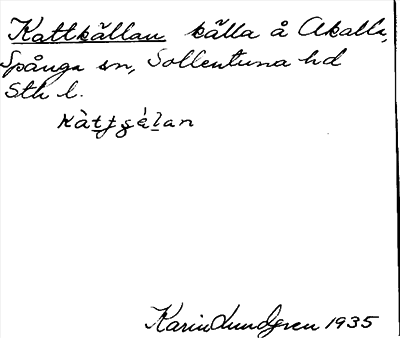 Kattkällan källa å Akalla,
Spånga sn, Sollentuna hd
Sth l.
Karin Lundgren 1935